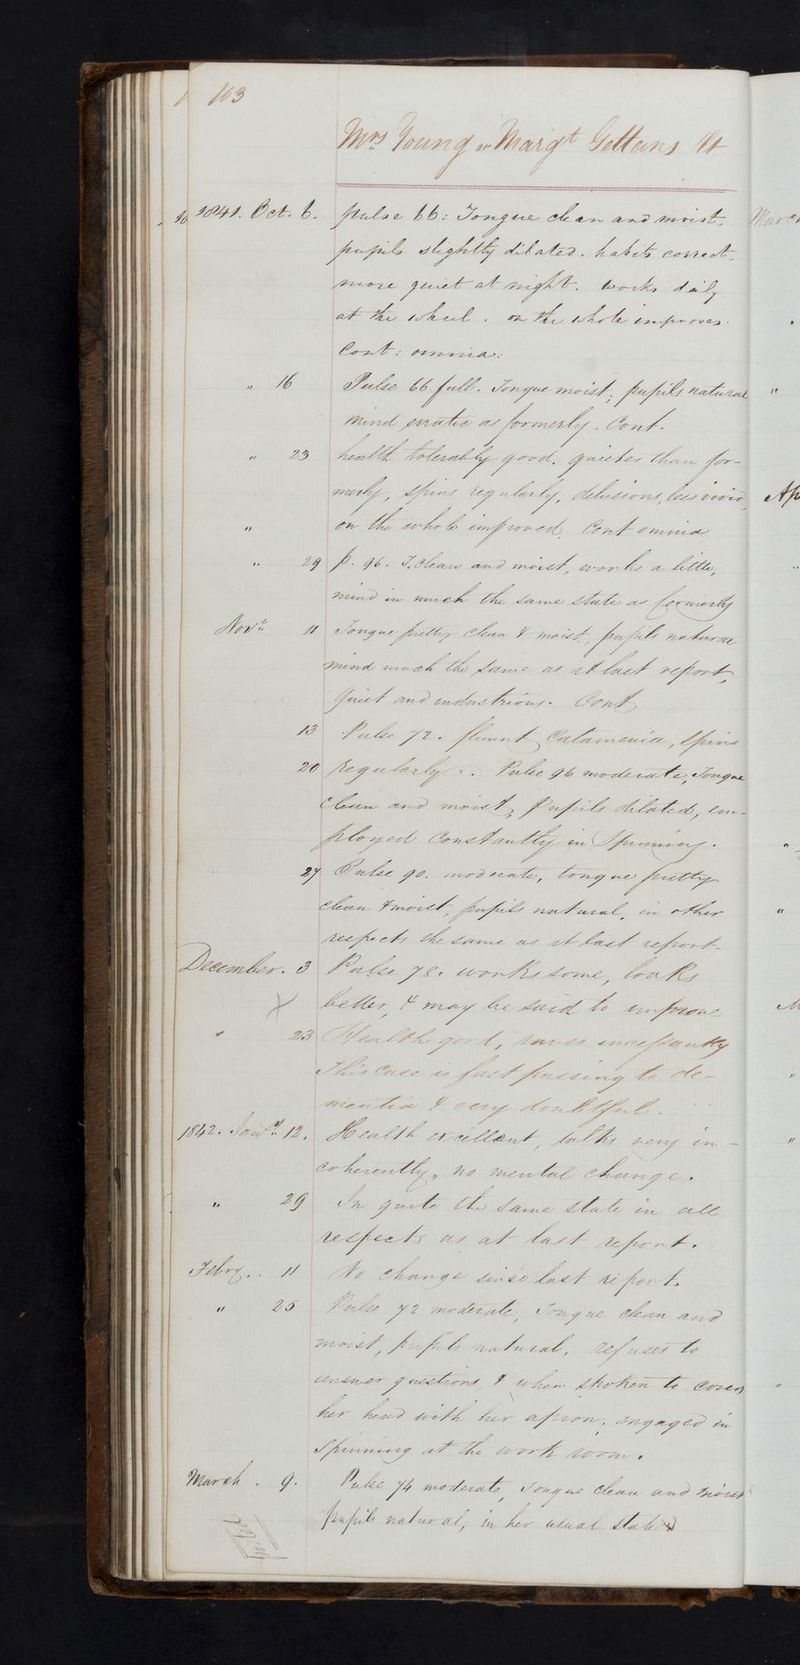 103
Mrs. Young or Margt. Gettans
1841. Oct. 6. pulse 66: Tongue clean and moist,
pupils slightly dilated. habits correct,
more quiet at night. works daily
at the wheel. on the whole improves.
Cont: omnia:
" 16 Pulse 66 full. Tongue moist; pupils natural
mind erratic as formerly. Cont.
" 23 health tolerably good. quieter than for-
merly, spins regularly, delusions less vivid,
" on the whole improved. Cont omnia
" 29 p. 96. T. clean and moist, works a little,
mind in much the same state as formerly
Novr. 11 Tongue pretty clean & moist, pupils natural
mind much the same as at last report,
Quiet and industrious. Cont
13 Pulse 72. fluunt Catamenia, Spins
20 regularly.. Pulse 96 moderate, Tongue
clean and moist, Pupils dilated, em-
ployed Constantly in Spinning.
27 Pulse 90. moderate, tongue pretty
clean & moist, pupils natural, in other
respects the same as at last report.
December. 3 Pulse 78. works some, looks
better, & may be said to improve
X
" 23 Health good, raves incessantly
This case is fast passing to de-
mentia & very doubtful.
1842. Jany. 12. Health excellent, talks very in-
coherently, no mental change.
" 29 In quite the same state in all
respects as at last report.
Febry.. 11 No change since last report.
" 25 Pulse 72 moderate, Tongue clean and
moist, pupils natural, refuses to
answer questions, & when spoken to covers
her head with her apron; engaged in
Spinning at the work room.
March. 9. Pulse 74 moderate, Tongue clean and moist
pupils natural, in her usual state